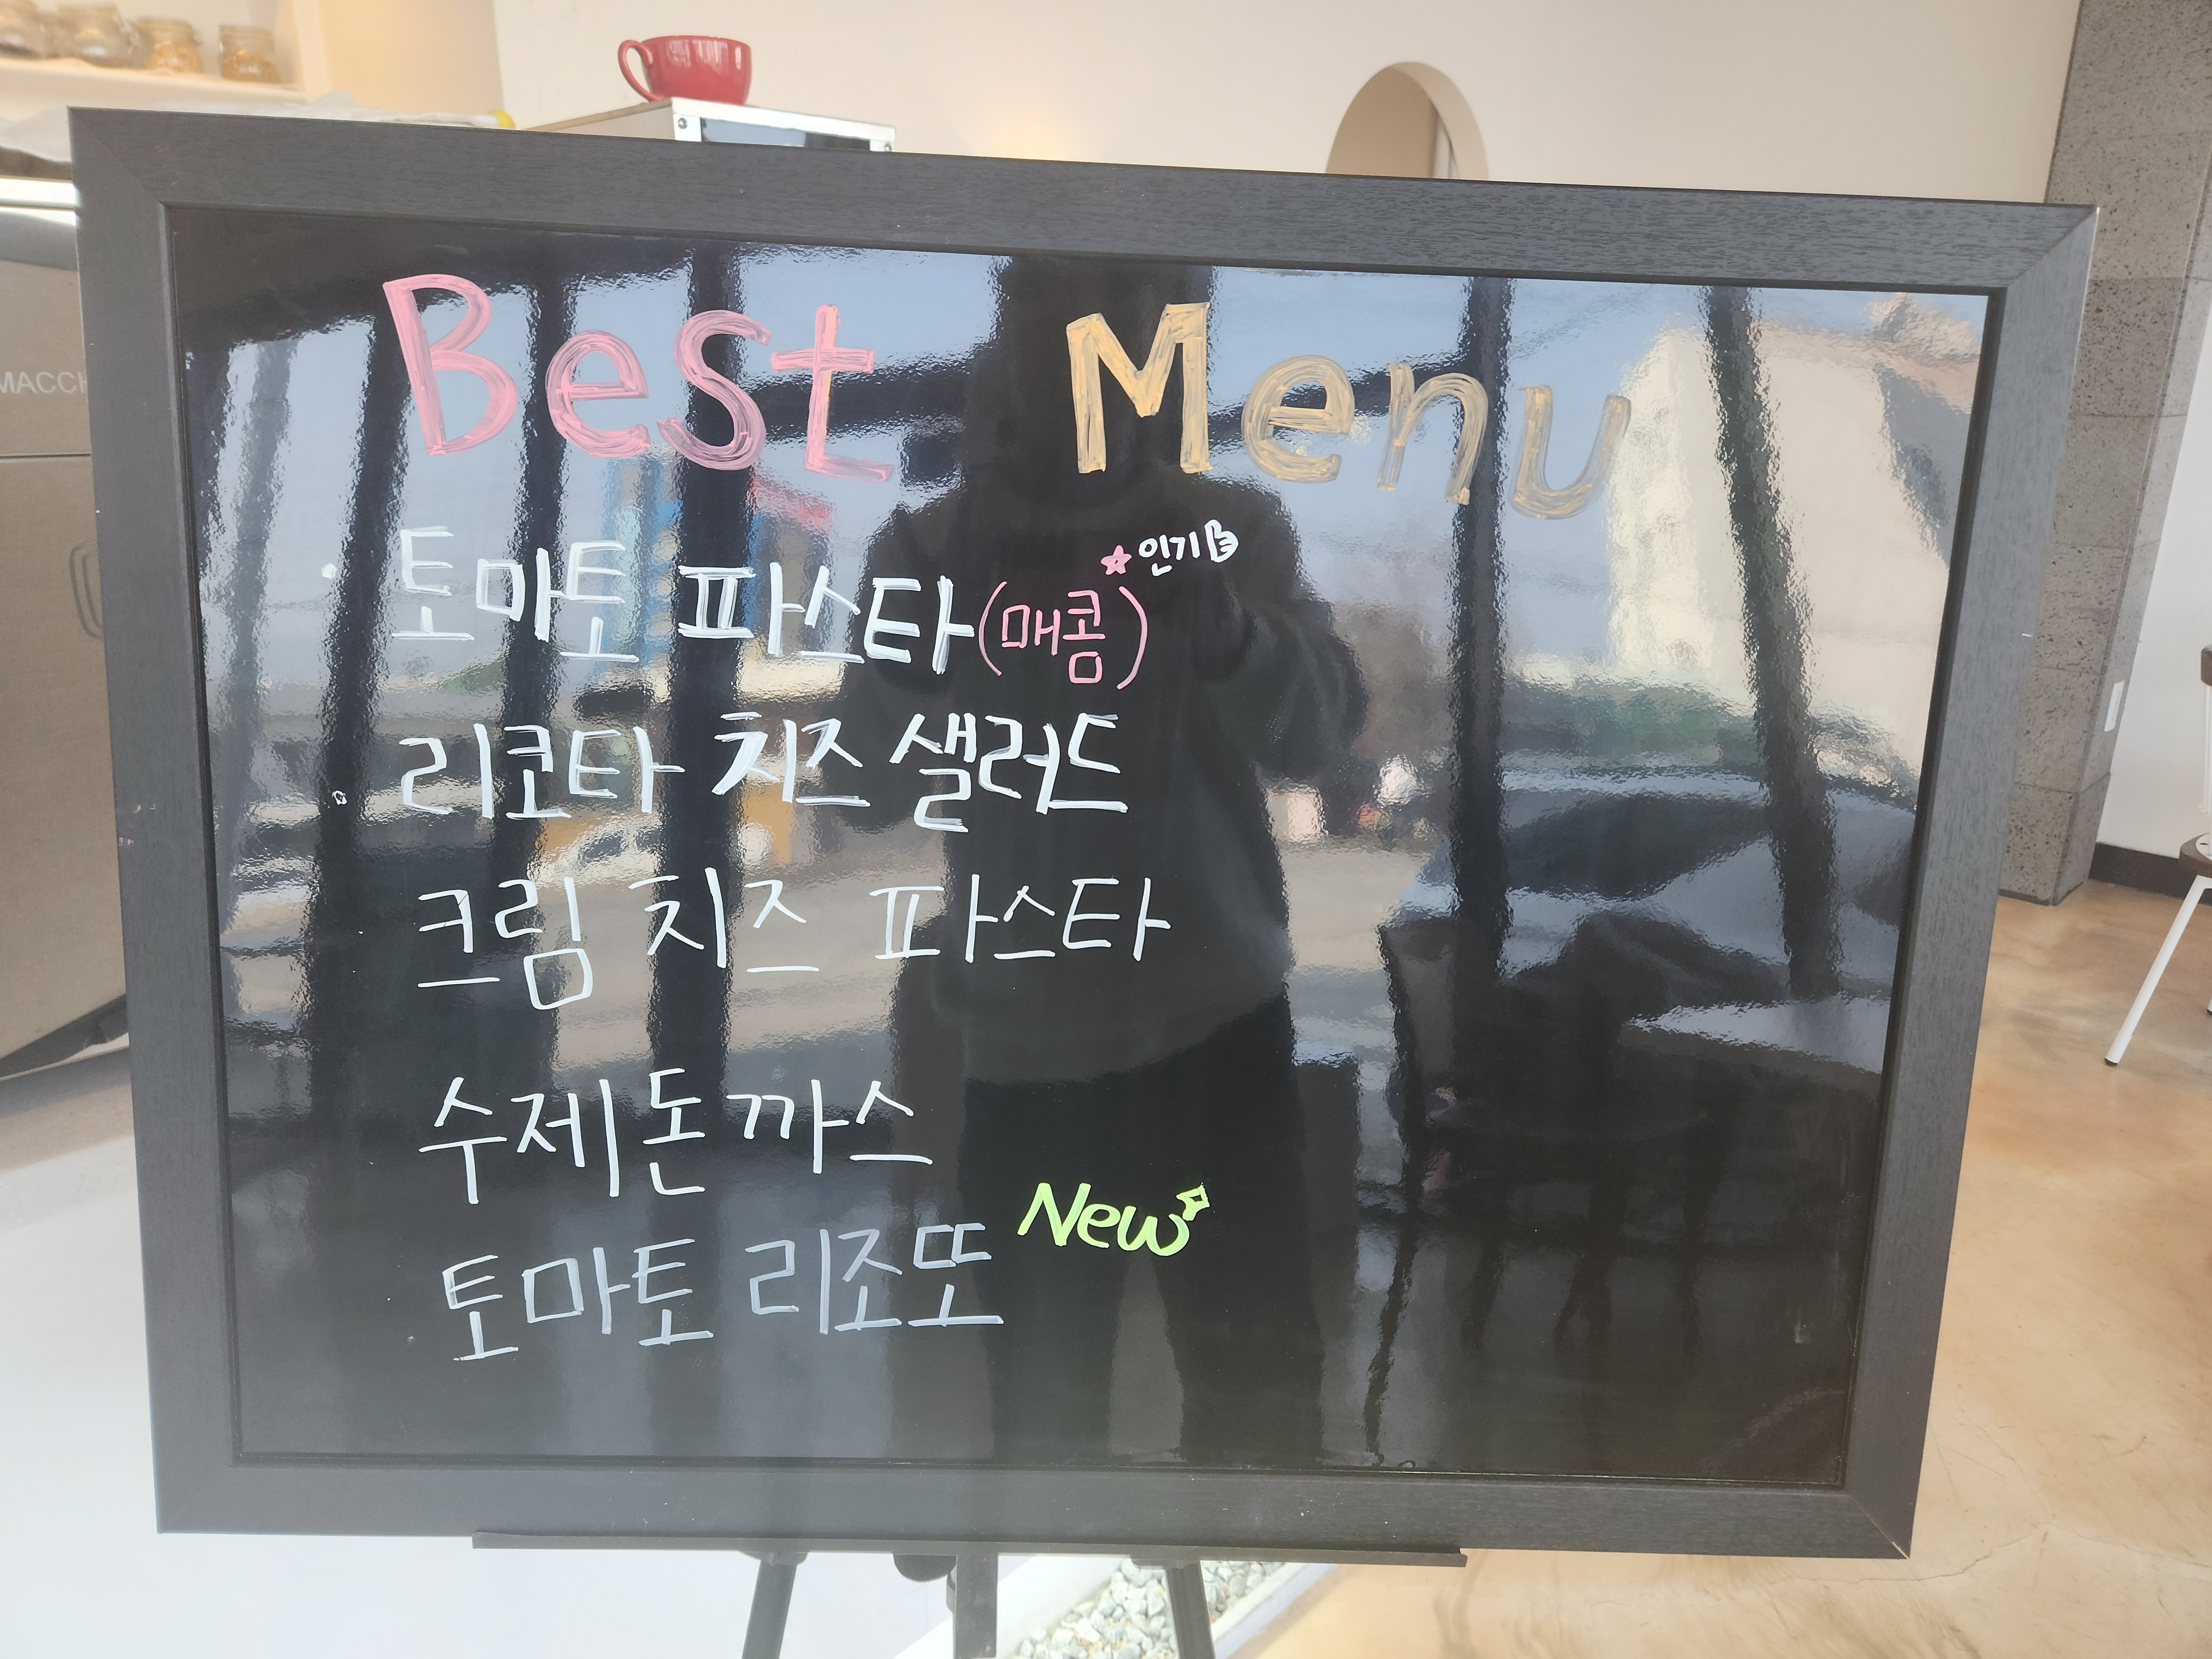 MACCH
Best Menu
★인기
토마토 파스타(매콤)
리코타 치즈 샐러드
크림 치즈 파스타
수제돈까스
New
토마토 리조또